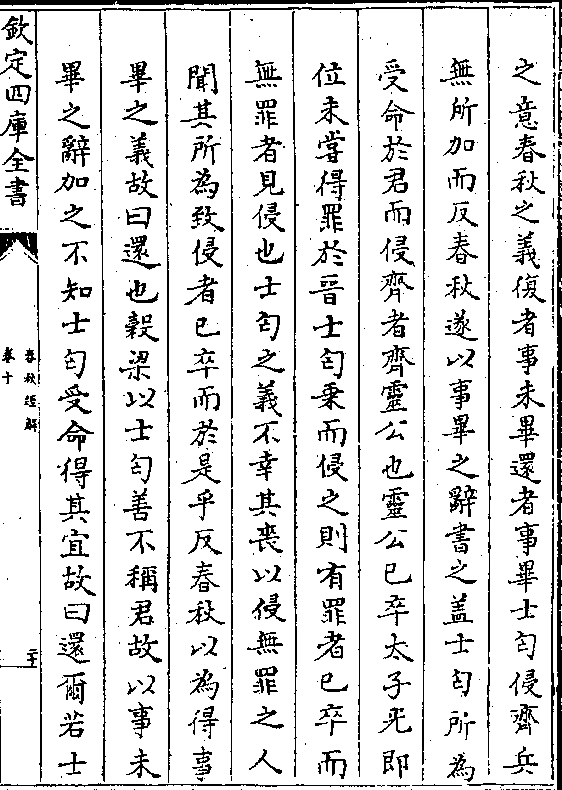 之意春秋之義復者事未畢還者事畢士匄侵齊兵
無所加而反春秋遂以事畢之辭書之盖士匄所為
受命於君而侵齊者齊靈公也靈公已卒太子光即
位未嘗得罪於晉士匄乗而侵之則有罪者已卒而
無罪者見侵也士匄之義不幸其喪以侵無罪之人
聞其所為致侵者已卒而於是乎反春秋以為得事
畢之義故曰還也榖梁以士匄善不稱君故以事未
畢之辭加之不知士匄受命得其宜故曰還爾若士
欽定四庫全書
春秋經解
卷十
二十